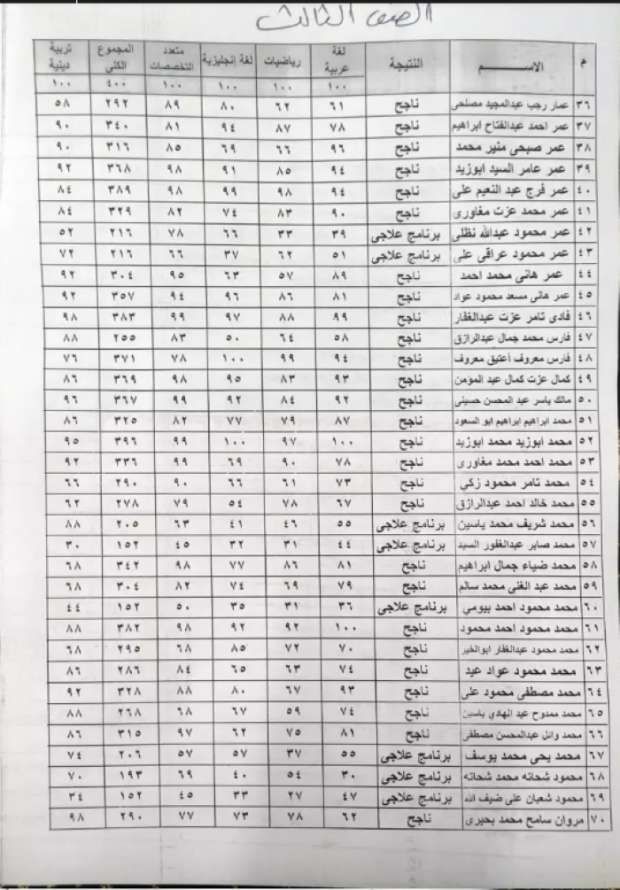 الصف الثالث
م الاســـم النتيجة لغة عربية رياضيات لغة إنجليزية متعدد التخصصات المجموع الكلى تربية دينية
١٠٠ ١٠٠ ١٠٠ ١٠٠ ٤٠٠ ١٠٠
٣٦ عمار رجب عبدالمجيد مصلحى ناجح ٦١ ٦٢ ٨٠ ٨٩ ٢٩٢ ٥٨
٣٧ عمر احمد عبدالفتاح ابراهيم ناجح ٧٨ ٨٧ ٩٤ ٨١ ٣٤٠ ٩٠
٣٨ عمر صبحى منير محمد ناجح ٩٦ ٦٦ ٦٩ ٨٥ ٣١٦ ٩٠
٣٩ عمر عامر السيد ابوزيد ناجح ٩٤ ٨٥ ٩١ ٩٨ ٣٦٨ ٩٢
٤٠ عمر فرج عبد النعيم على ناجح ٩٤ ٩٨ ٩٩ ٩٨ ٣٨٩ ٨٤
٤١ عمر محمد عزت مغاورى ناجح ٩٠ ٨٣ ٧٤ ٨٢ ٣٢٩ ٨٤
٤٢ عمر محمود عبدالله نظلى برنامج علاجى ٣٩ ٣٣ ٦٦ ٧٨ ٢١٦ ٥٢
٤٣ عمر محمود عراقى على برنامج علاجى ٥١ ٦٢ ٣٧ ٦٦ ٢١٦ ٧٢
٤٤ عمر هانى محمد احمد ناجح ٨٩ ٥٧ ٦٣ ٩٥ ٣٠٤ ٩٢
٤٥ عمر هانى مسعد محمود عواد ناجح ٨١ ٨٦ ٩٦ ٩٤ ٣٥٧ ٩٢
٤٦ فادى تامر عزت عبدالغفار ناجح ٩٩ ٨٨ ٩٧ ٩٩ ٣٨٣ ٩٨
٤٧ فارس محمد جمال عبدالرازق ناجح ٥٨ ٦٤ ٥٠ ٨٣ ٢٥٥ ٨٨
٤٨ فارس معروف اعتيق معروف ناجح ٩٤ ٩٩ ١٠٠ ٧٨ ٣٧١ ٧٦
٤٩ كمال عزت كمال عبد المؤمن ناجح ٩٣ ٨٣ ٩٥ ٩٨ ٣٦٩ ٨٦
٥٠ مالك ياسر عبد المحسن حسينى ناجح ٩٢ ٨٤ ٩٢ ٩٩ ٣٦٧ ٩٦
٥١ محمد ابراهيم ابراهيم ابو السعود ناجح ٨٧ ٧٩ ٧٧ ٨٢ ٣٢٥ ٨٦
٥٢ محمد ابوزيد محمد ابوزيد ناجح ١٠٠ ٩٧ ١٠٠ ٩٩ ٣٩٦ ٩٥
٥٣ محمد احمد محمد مغاورى ناجح ٧٨ ٩٠ ٦٩ ٩٩ ٣٣٦ ٩٢
٥٤ محمد تامر محمود زكي ناجح ٧٣ ٦١ ٦٦ ٩٠ ٢٩٠ ٦٦
٥٥ محمد خالد احمد عبدالرازق ناجح ٦٧ ٧٨ ٥٤ ٧٩ ٢٧٨ ٦٢
٥٦ محمد شريف محمد ياسين برنامج علاجى ٥٥ ٤٦ ٤١ ٦٣ ٢٠٥ ٨٨
٥٧ محمد صابر عبدالغفور السيد برنامج علاجى ٤٤ ٣١ ٣٢ ٤٥ ١٥٢ ٣٠
٥٨ محمد ضياء جمال ابراهيم ناجح ٨١ ٨٦ ٧٧ ٩٨ ٣٤٢ ٦٨
٥٩ محمد عبد الغنى محمد سالم ناجح ٧٩ ٦٩ ٧٤ ٨٢ ٣٠٤ ٦٨
٦٠ محمد محمود احمد بيومي برنامج علاجى ٣٦ ٣١ ٣٥ ٥٠ ١٥٢ ٤٤
٦١ محمد محمود احمد محمود ناجح ١٠٠ ٩٢ ٩٢ ٩٨ ٣٨٢ ٨٨
٦٢ محمد محمود عبدالغفار ابوالخير ناجح ٧٠ ٧٢ ٨٥ ٦٨ ٢٩٥ ٦٨
٦٣ محمد محمود عواد عيد ناجح ٧٤ ٦٣ ٦٥ ٨٤ ٢٨٦ ٨٦
٦٤ محمد مصطفى محمود على ناجح ٩٣ ٦٧ ٨٠ ٨٨ ٣٢٨ ٩٢
٦٥ محمد ممدوح عبد الهادي ياسين ناجح ٧٤ ٥٩ ٦٧ ٦٨ ٢٦٨ ٨٨
٦٦ محمد وائل عبدالمحسن مصطفى ناجح ٨١ ٧٥ ٦٢ ٩٧ ٣١٥ ٨٦
٦٧ محمد يحى محمد يوسف برنامج علاجى ٥٥ ٣٧ ٥٧ ٥٧ ٢٠٦ ٧٤
٦٨ محمود شحاته محمد شحاته برنامج علاجى ٣٠ ٥٤ ٤٠ ٦٩ ١٩٣ ٧٠
٦٩ محمود شعبان على ضيف الله برنامج علاجى ٤٧ ٢٧ ٣٣ ٤٥ ١٥٢ ٣٤
٧٠ مروان سامح محمد بحيرى ناجح ٦٢ ٧٨ ٧٣ ٧٧ ٢٩٠ ٩٨